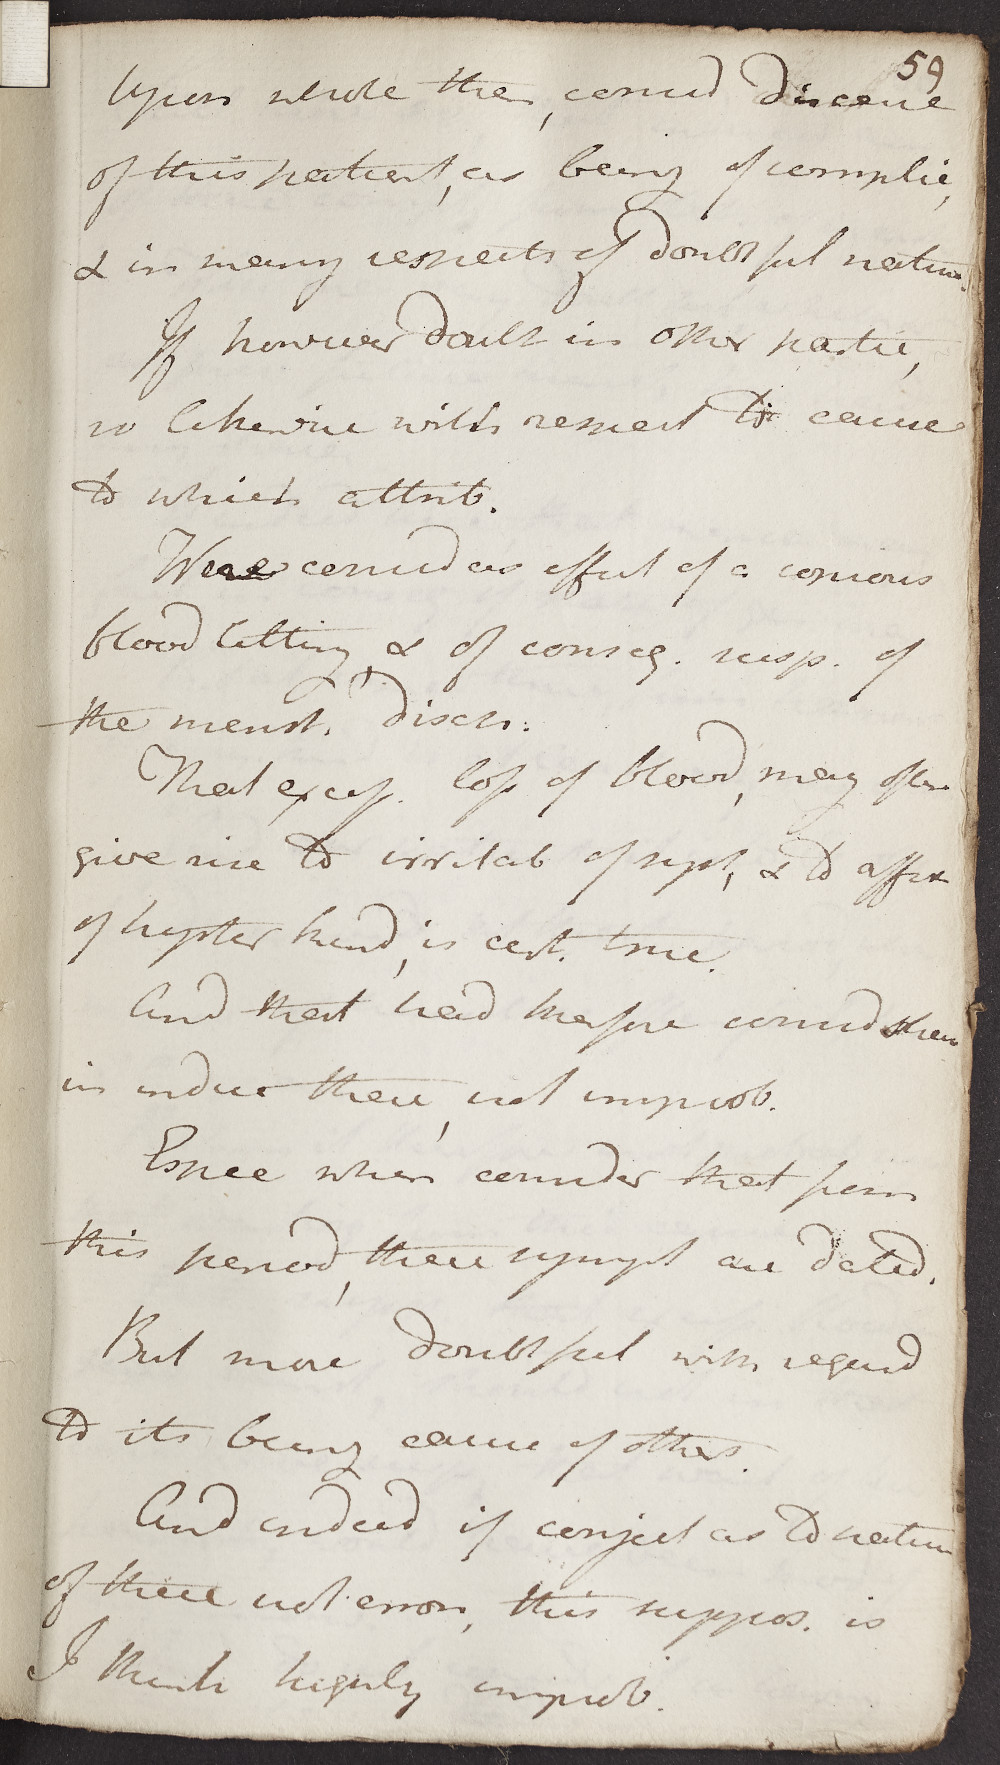 59
Upon whole then, consid disease
of this patient, as being of complic,
& in many respects of doubtful nature.
If however doubt in other partic,
so likewise with respect to cause
to which attrib.
Were consid as effect of a copious
blood letting, & of conseq. supp. of
the menst. disch:
That excess. loss of blood, may often
give rise to irritab of syst, & to affect
of hyster kind, is cert. true.
And that had therefore consid share
in induc these, not improb.
Espec when consider that from
this period, these sympt are dated.
But more doubtful with regard
to its being cause of others.
And indeed if conject as to nature
of these not error, this suppos. is
I think highly improb.